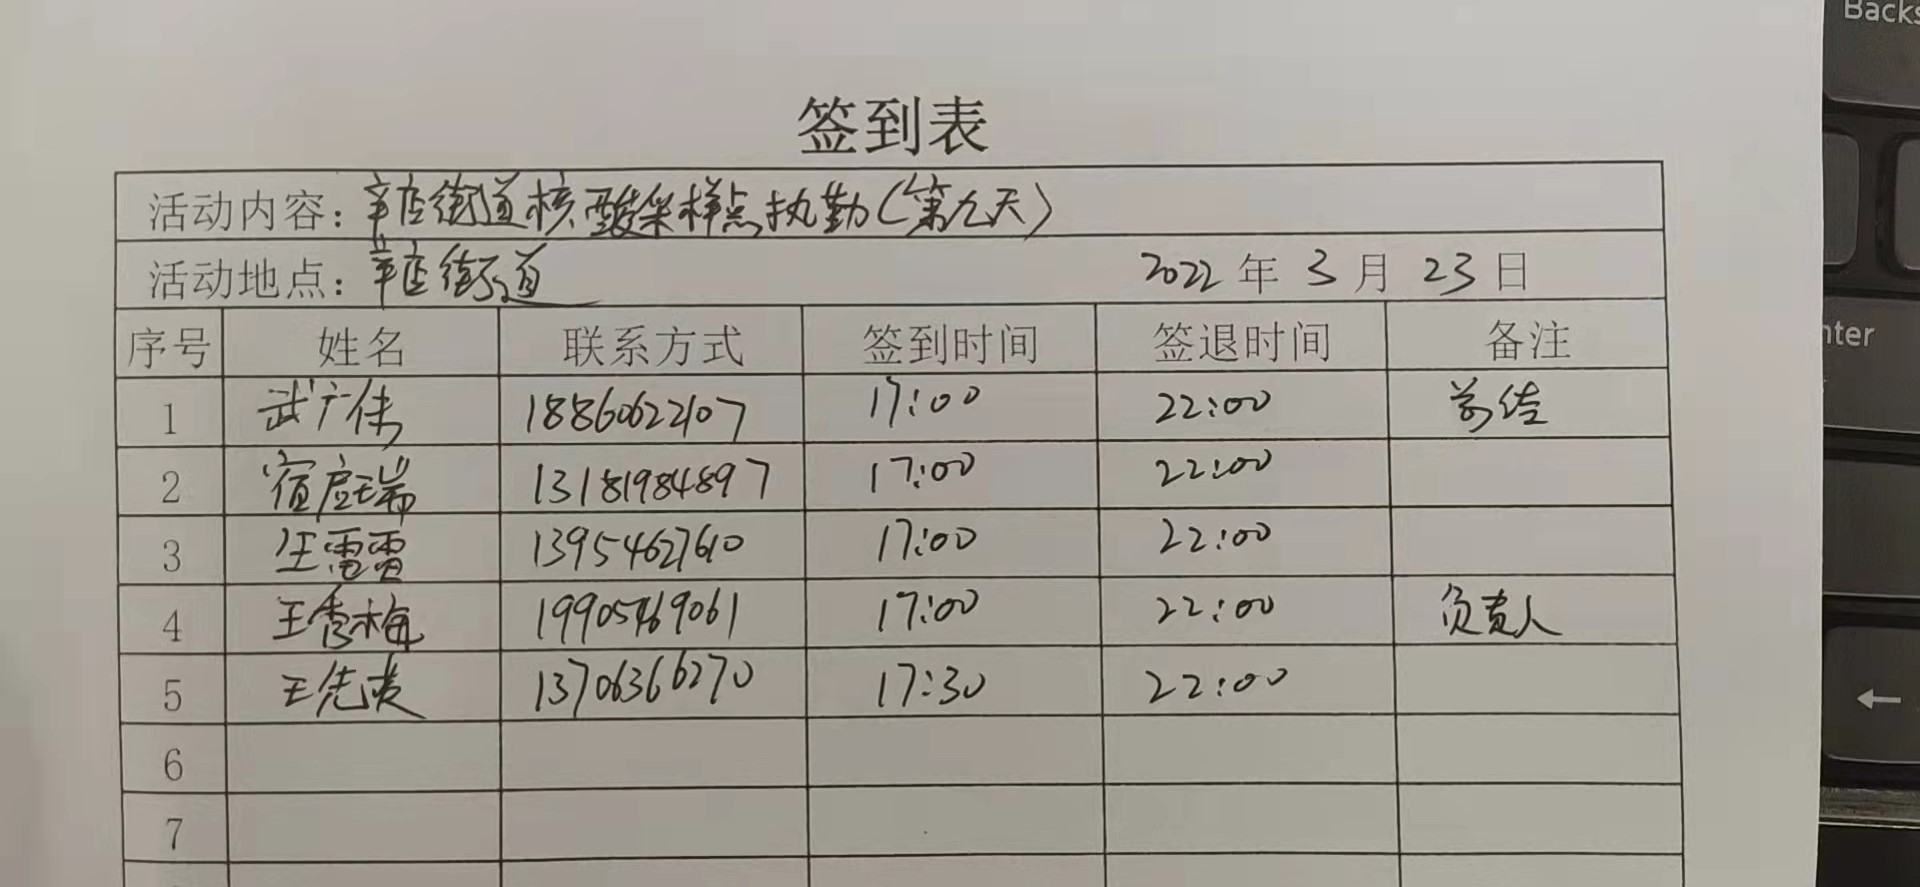 签到表
活动内容：辛店街道核酸采样点执勤（第九天）
活动地点：辛店街道 2022年3月23日
序号 姓名 联系方式 签到时间 签退时间 备注
1 武广伟 18860622107 17:00 22:00
2 宿庭瑞 13181984897 17:00 22:00
3 任雷雷 13954627610 17:00 22:00
4 王秀梅 19905469061 17:00 22:00 负责人
5 王先 13706366270 17:30 22:00
6
7
Backs
nter
←